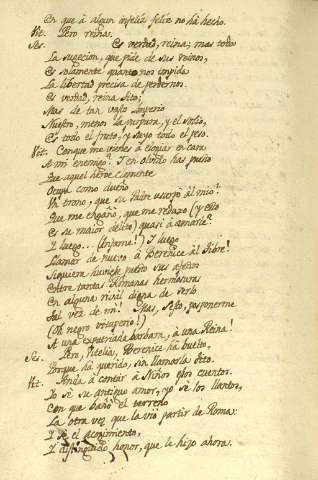 En que à algun infeliz felize no há hecho.
Vit. Pero reinas.
Ses. Es verdad, reina; mas todo
La sugecion, que pide de sus reinos,
Es solamente quanto nos convida
La libertad precisa de perdernos.
Es verdad, reina Tito;
Mas de tan vasto imperio
Nuestro, menos la purpura, y el solio,
Es todo el fruto, y suyo todo el peso.
Vit. Conque me vienes à elogiar en cara
A mi enemigo? I en olvido has puesto
Que aquel héroe clemente
Ocupa como dueño
Un trono, que su Padre usurpó al mio?
Que me engañó, que me redujo (y esto
Es su maior delito) quasi à amarle?
I luego... (Infame!) I luego
Llamar de nuevo à Berenice al Tibre!
Siquiera huviese puesto sus afectos
Entre tantas Romanas hermosuras
En alguna rival digna de serlo
Tal vez de mi! Mas, Sesto, posponerme
(Oh negro vituperio!)
A una expatriada barbara, à una Reina!
Ses. Pero, Vitelia, Berenice há buelto,
Porque há querido, sin llamarla Tito.
Vit. Anda à contar à Niños esos cuentos.
Io sé su antiguo amor, yo sé los llantos,
Con que bañó el terreno
La otra vez que la vió partir de Roma:
I sé el acogimiento,
I distinguido honor, que la hizo ahora.